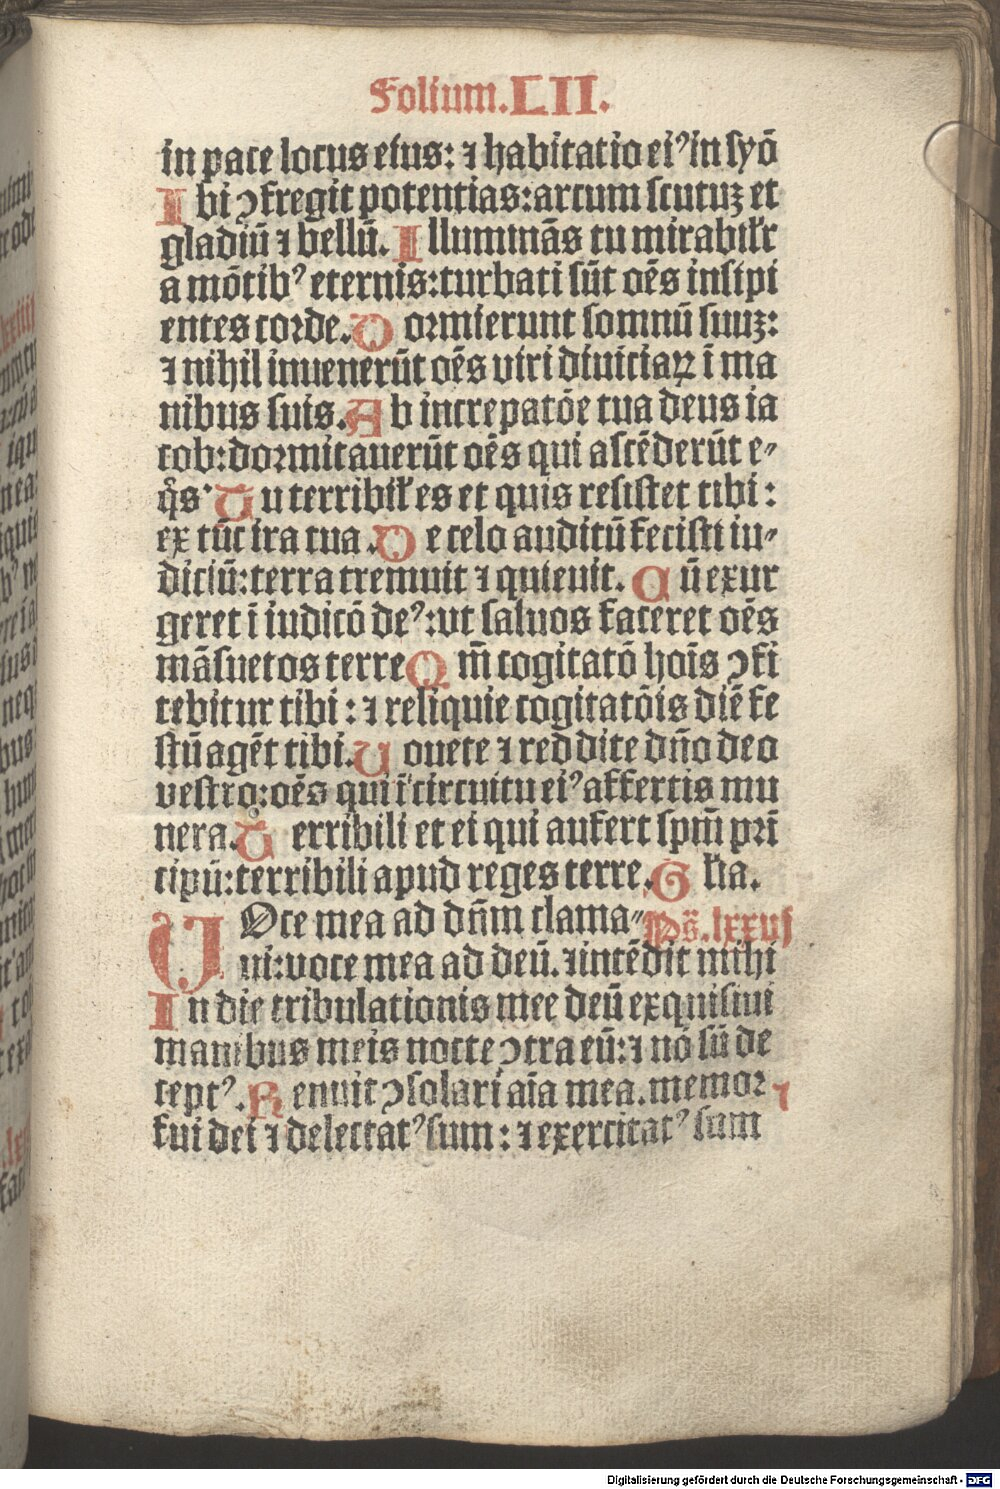 Folium.LII.
in pace locus eius: ⁊ habitatio ei⁹ in syō
Ibi ↄfregit potentias: arcum scutuꝫ et
gladiū ⁊ bellū. Illuminās tu mirabilʳ
a mōtib⁹ eternis: turbati sūt oēs insipi
entes corde. Dormierunt somnū suuꝫ:
⁊ nihil inuenerūt oēs viri diuiciaꝝ ī ma
nibus suis. Ab increpatōe tua deus ia
cob: dormitauerūt oēs qui ascēderūt e⸗
q̄s. Tu terribilʳ es et quis resistet tibi:
ex tūc ira tua. De celo auditū fecisti iu⸗
diciū: terra tremuit ⁊ quieuit. Cū exur
geret ī iudicō de⁹: vt saluos faceret oēs
māsuetos terre Qm̄ cogitatō hoīs ↄfi
tebitur tibi: ⁊ reliquie cogitatōis diē fe
stū agēt tibi. Uouete ⁊ reddite dn̄o deo
vestro: oēs qui ī circuitu ei⁹ affertis mu
nera. Terribili et ei qui aufert spm̄ pri̅
cipū: terribili apud reges terre. Glīa.
VOce mea ad dn̄m clama⸗ Ps̄. lxxvj
ui: voce mea ad deū. ⁊ intēdit mihi
In die tribulationis mee deū exquisiui
manibus meis nocte ↄtra eū: ⁊ nō sū de
cept⁹. Renuit ↄsolari aīa mea. memor ⁊
fui dei ⁊ delectat⁹ sum: ⁊ exercitat⁹ sum
Digitalisierung gefördert durch die Deutsche Forschungsgemeinschaft - DFG